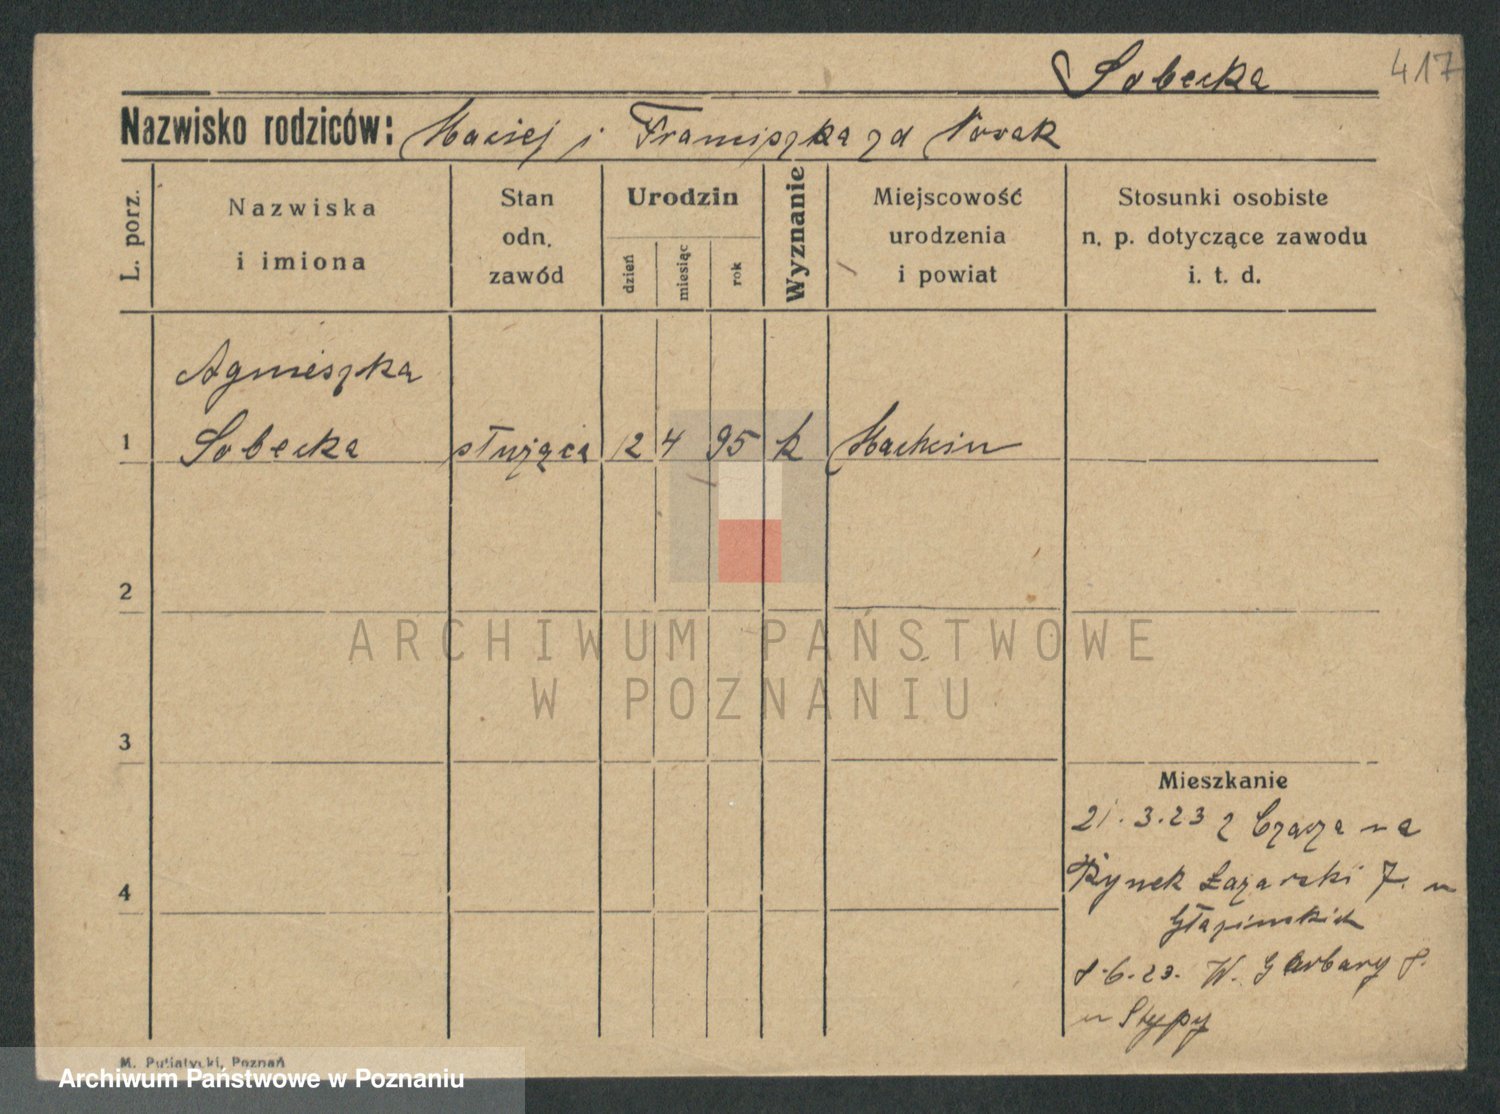 Sobecka 417
Nazwisko rodziców: Maciej i Franciszka zd Nowak
L. porz.
Nazwiska
i imiona
Stan
odn.
zawód
Urodzin
dzień
miesiąc
rok
Wyznanie
Miejscowość
urodzenia
i powiat
Stosunki osobiste
n. p. dotyczące zawodu
i. t. d.
Agnieszka
1 Sobecka służąca 12 4 95 k Machcin
2
ARCHIWUM PAŃSTWOWE
W POZNANIU
3
Mieszkanie
21.3.23 z Czacza na
4
Rynek Łazarski 7. u
8.6.23. W. Garbary 8.
u Stypy
M. Putiatycki, Poznań
Archiwum Państwowe w Poznaniu